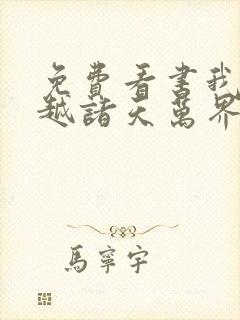 免費看書我
越諸天萬界
馬寧宇